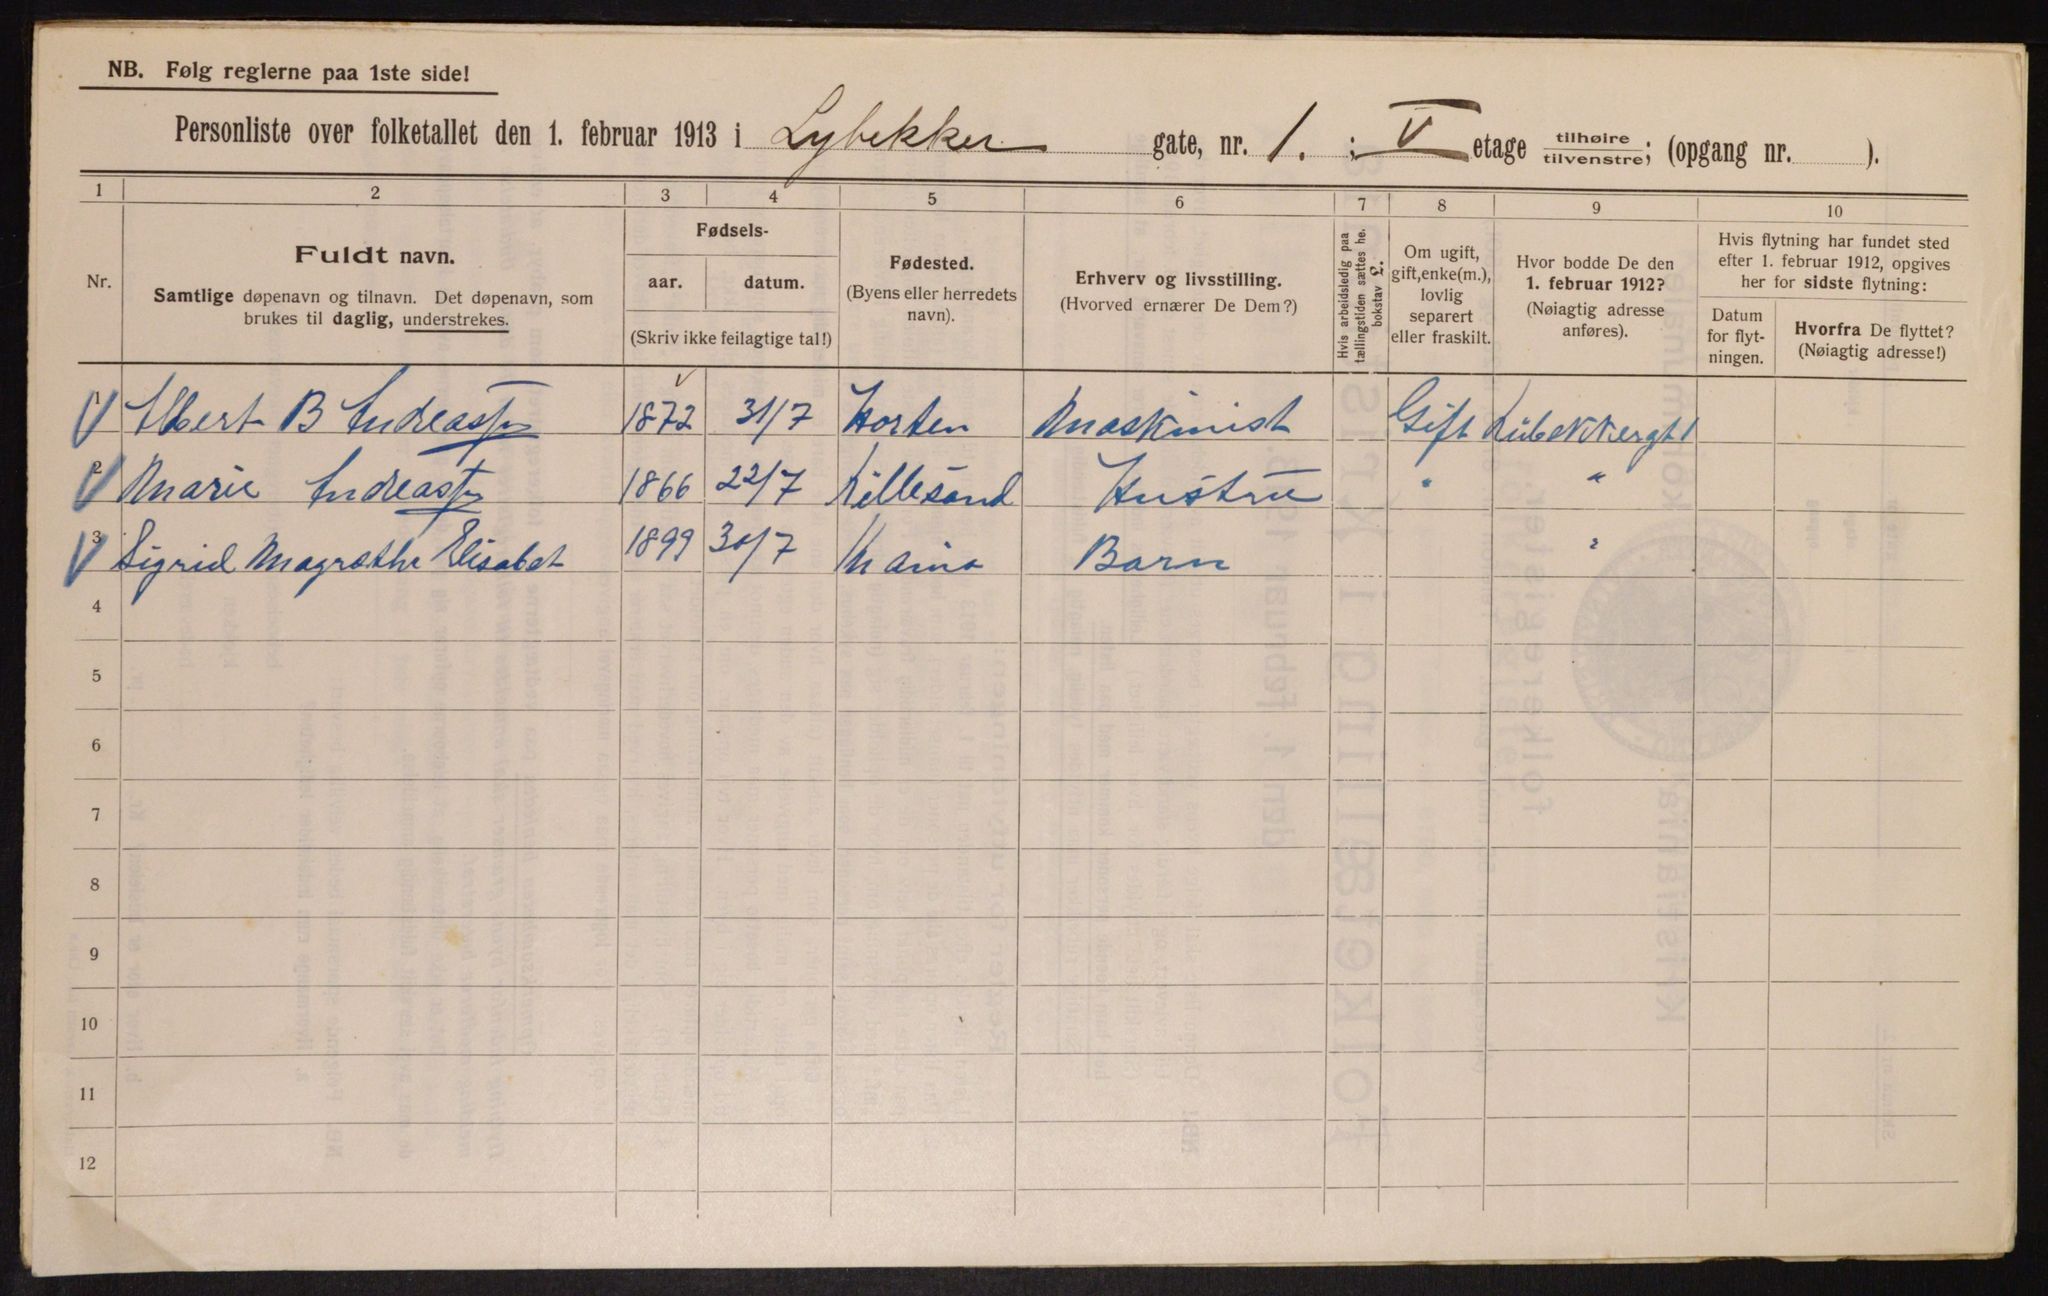 NB. Følg reglerne paa 1ste side!
Personliste over folketallet den 1. februar 1913 i Lybekker gate, nr. 1. : V etage tilhøire tilvenstre; (opgang nr. ).
1 2 3 4 5 6 7 8 9 10
Nr.
Fuldt navn.
Samtlige døpenavn og tilnavn. Det døpenavn, som
brukes til daglig, understrekes.
Fødsels-
aar. datum.
(Skriv ikke feilagtige tal!)
Fødested.
(Byens eller herredets
navn).
Erhverv og livsstilling.
(Hvorved ernærer De Dem?)
Hvis arbeidsledig paa
tællingstiden sættes he.
bokstav L.
Om ugift,
gift, enke(m.),
lovlig
separert
eller fraskilt.
Hvor bodde De den
1. februar 1912?
(Nøiagtig adresse
anføres).
Hvis flytning har fundet sted
efter 1. februar 1912, opgives
her for sidste flytning:
Datum
for flyt-
ningen.
Hvorfra De flyttet?
(Nøiagtig adresse!)
1 Albert B Andreass 1872 31/7 Horten Maskinist Gift Lübekkergt 1
2 Marie Andreass 1866 22/7 Lillesand Hustru " "
3 Sigrid Magrethe Elisabet 1899 30/7 Barn "
4
5
6
7
8
9
10
11
12